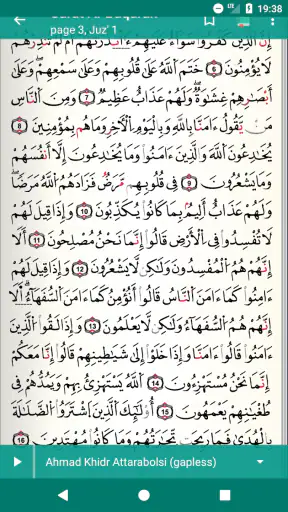 19:38
page 3, Juz' 1
إِنَّ ٱلَّذِينَ كَفَرُوا۟ سَوَآءٌ عَلَيْهِمْ ءَأَنذَرْتَهُمْ أَمْ لَمْ تُنذِرْهُمْ
لَا يُؤْمِنُونَ 6 خَتَمَ ٱللَّهُ عَلَىٰ قُلُوبِهِمْ وَعَلَىٰ سَمْعِهِمْ ۖ وَعَلَىٰٓ
أَبْصَٰرِهِمْ غِشَٰوَةٌ ۖ وَلَهُمْ عَذَابٌ عَظِيمٌ 7 وَمِنَ ٱلنَّاسِ
مَن يَقُولُ ءَامَنَّا بِٱللَّهِ وَبِٱلْيَوْمِ ٱلْءَاخِرِ وَمَا هُم بِمُؤْمِنِينَ 8
يُخَٰدِعُونَ ٱللَّهَ وَٱلَّذِينَ ءَامَنُوا۟ وَمَا يَخْدَعُونَ إِلَّآ أَنفُسَهُمْ
وَمَا يَشْعُرُونَ 9 فِى قُلُوبِهِم مَّرَضٌ فَزَادَهُمُ ٱللَّهُ مَرَضًا ۖ
وَلَهُمْ عَذَابٌ أَلِيمٌۢ بِمَا كَانُوا۟ يَكْذِبُونَ 10 وَإِذَا قِيلَ لَهُمْ
لَا تُفْسِدُوا۟ فِى ٱلْأَرْضِ قَالُوٓا۟ إِنَّمَا نَحْنُ مُصْلِحُونَ 11 أَلَآ
إِنَّهُمْ هُمُ ٱلْمُفْسِدُونَ وَلَٰكِن لَّا يَشْعُرُونَ 12 وَإِذَا قِيلَ لَهُمْ
ءَامِنُوا۟ كَمَآ ءَامَنَ ٱلنَّاسُ قَالُوٓا۟ أَنُؤْمِنُ كَمَآ ءَامَنَ ٱلسُّفَهَآءُ ۗ أَلَآ
إِنَّهُمْ هُمُ ٱلسُّفَهَآءُ وَلَٰكِن لَّا يَعْلَمُونَ 13 وَإِذَا لَقُوا۟ ٱلَّذِينَ
ءَامَنُوا۟ قَالُوٓا۟ ءَامَنَّا وَإِذَا خَلَوْا۟ إِلَىٰ شَيَٰطِينِهِمْ قَالُوٓا۟ إِنَّا مَعَكُمْ
إِنَّمَا نَحْنُ مُسْتَهْزِءُونَ 14 ٱللَّهُ يَسْتَهْزِئُ بِهِمْ وَيَمُدُّهُمْ فِى
طُغْيَٰنِهِمْ يَعْمَهُونَ 15 أُو۟لَٰٓئِكَ ٱلَّذِينَ ٱشْتَرَوُا۟ ٱلضَّلَٰلَةَ
بِٱلْهُدَىٰ فَمَا رَبِحَت تِّجَٰرَتُهُمْ وَمَا كَانُوا۟ مُهْتَدِينَ 16
Ahmad Khidr Attarabolsi (gapless)